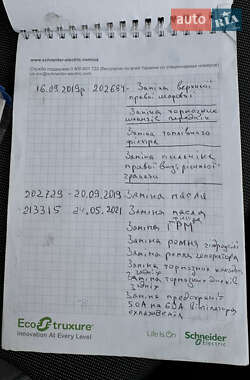 AUTO.RIA
www.schneider-electric.com/ua
16.09.2019р 202684 - Заміна верхньої
правої
Заміна тормозних
шлангів передніх
Заміна топлівного
фільтра
Заміна пильніка
правої внутрішньої
гранати
202729 - 20.09.2019 Заміна масла
213315 24.05.2021 Заміна масла
фільтра
Заміна ГРМ
Заміна ременя
Заміна ременя генератора
Заміна тормозних колодок
задніх
Заміна тормозних дисків
задніх
Заміна
50А на 60А
Eco Struxure
Innovation At Every Level
Life Is On
Schneider
Electric